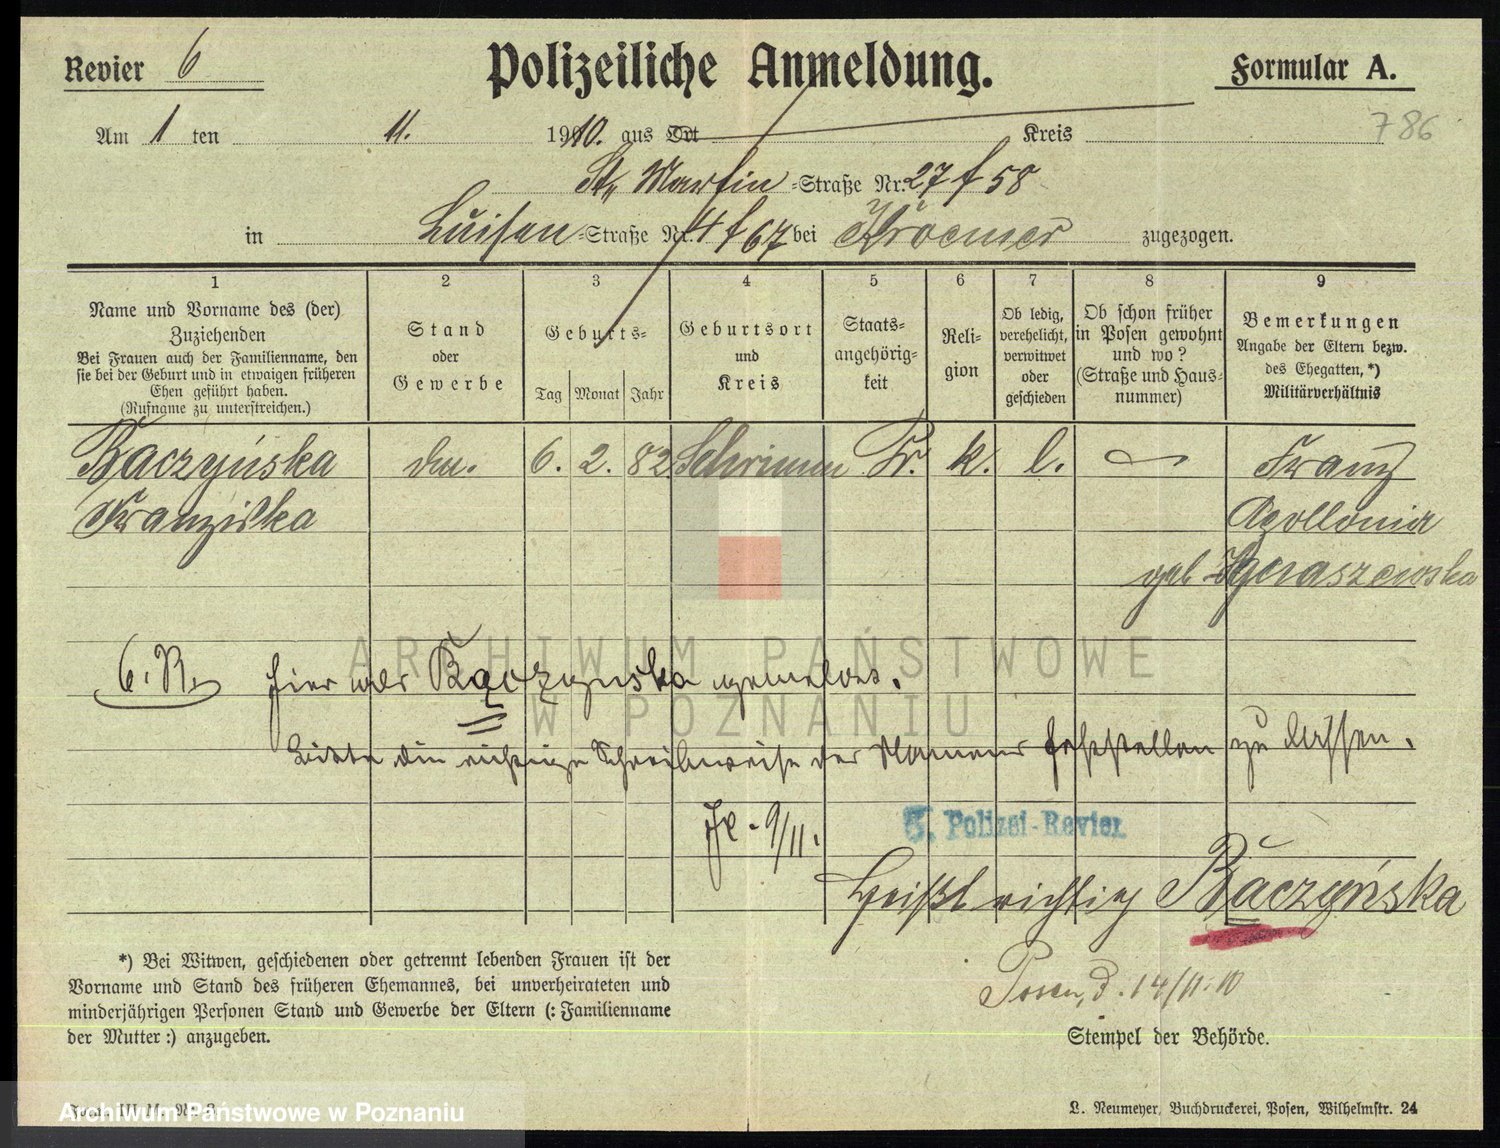 Revier 6
Polizeiliche Anmeldung.
Formular A.
786
Am 1 ten 11. 1910. aus Ort Kreis
St. Martin -Straße Nr. 27 f 58
in Luisen -Straße Nr. 4 f 67 bei Kroemer zugezogen.
1 2 3 4 5 6 7 8 9
Name und Vorname des (der)
Zuziehenden
Bei Frauen auch der Familienname, den
sie bei der Geburt und in etwaigen früheren
Ehen geführt haben.
(Rufname zu unterstreichen.)
Stand
oder
Gewerbe
Geburts-
Tag Monat Jahr
Geburtsort
und
Kreis
Staats-
angehörig-
keit
Reli-
gion
Ob ledig,
verehelicht,
verwitwet
oder
geschieden
Ob schon früher
in Posen gewohnt
und wo?
(Straße und Haus-
nummer)
Bemerkungen
Angabe der Eltern bezw.
des Ehegatten, *)
Militärverhältnis
Baczyńska 6. 2. 82 Schrimm Pr. k. l. Franz
Franziska Apollonia
geb Ignaszewska
6. R. hier als Bączynska gemeldet.
Bitte die richtige Schreibweise des Namens feststellen zu lassen.
9/11.
5. Polizei-Revier
Heißt richtig Baczyńska
Posen, d. 14/11. 10
*) Bei Witwen, geschiedenen oder getrennt lebenden Frauen ist der
Vorname und Stand des früheren Ehemannes, bei unverheirateten und
minderjährigen Personen Stand und Gewerbe der Eltern (: Familienname
der Mutter :) anzugeben.
Stempel der Behörde.
L. Neumeyer, Buchdruckerei, Posen, Wilhelmstr. 24
ARCHIWUM PAŃSTWOWE
W POZNANIU
Archiwum Państwowe w Poznaniu